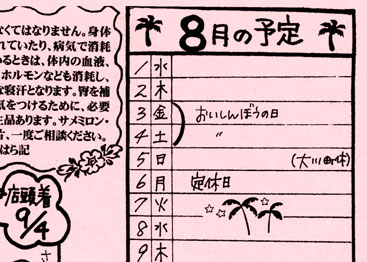 なくてはなりません。身体
れていたり、病気で消耗
いるときは、体内の血液、
ホルモンなども消耗し、
な寝汗となります。腎を補
気をつけるために、必要
生品あります。サメミロン・
片、一度ご相談ください。
はら記
店頭着
9/4
さ
8月の予定
1 水
2 木
3 金 おいしんぼうの日
4 土 〃
5 日
6 月 定休日
7 火
8 水
9 木